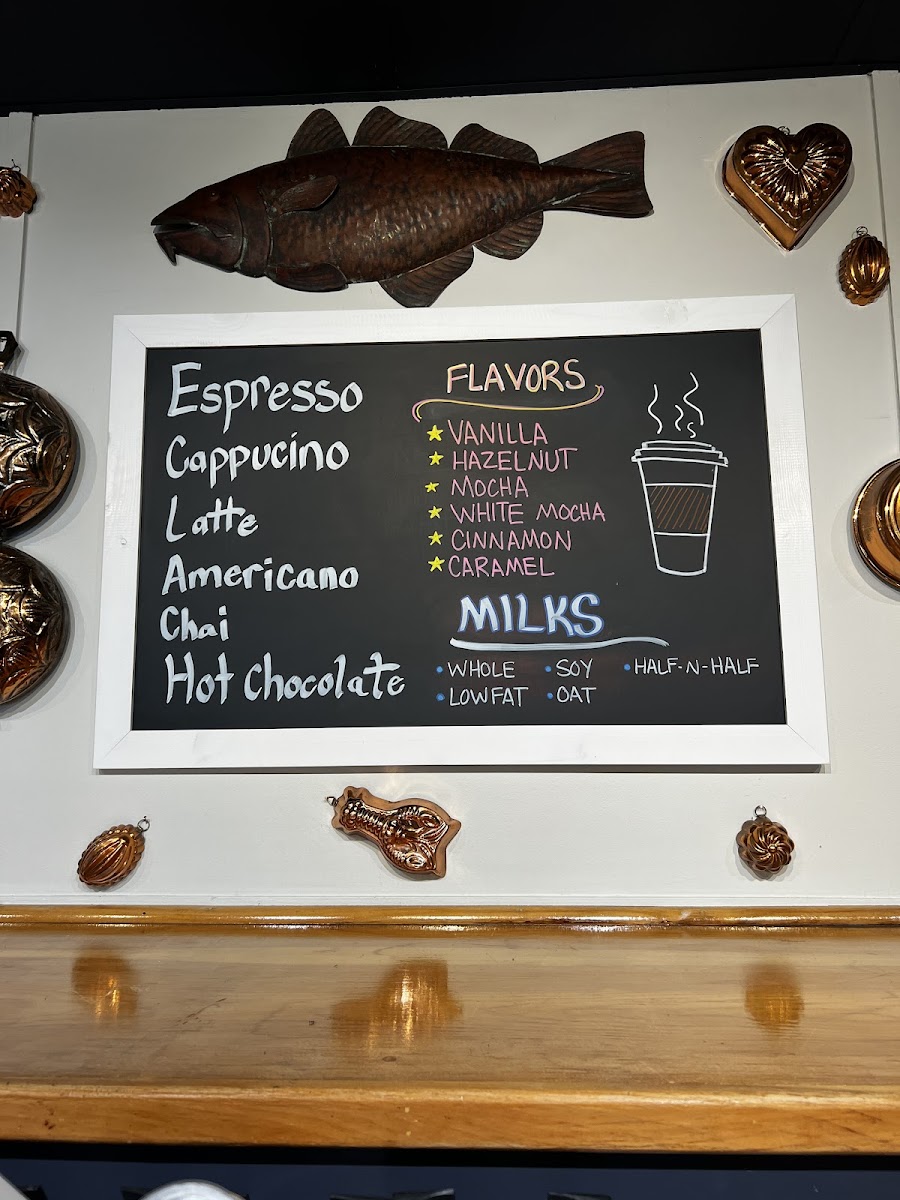 Espresso
Cappucino
Latte
Americano
Chai
Hot Chocolate
FLAVORS
VANILLA
HAZELNUT
MOCHA
WHITE MOCHA
CINNAMON
CARAMEL
MILKS
• WHOLE • SOY • HALF-N-HALF
• LOWFAT • OAT